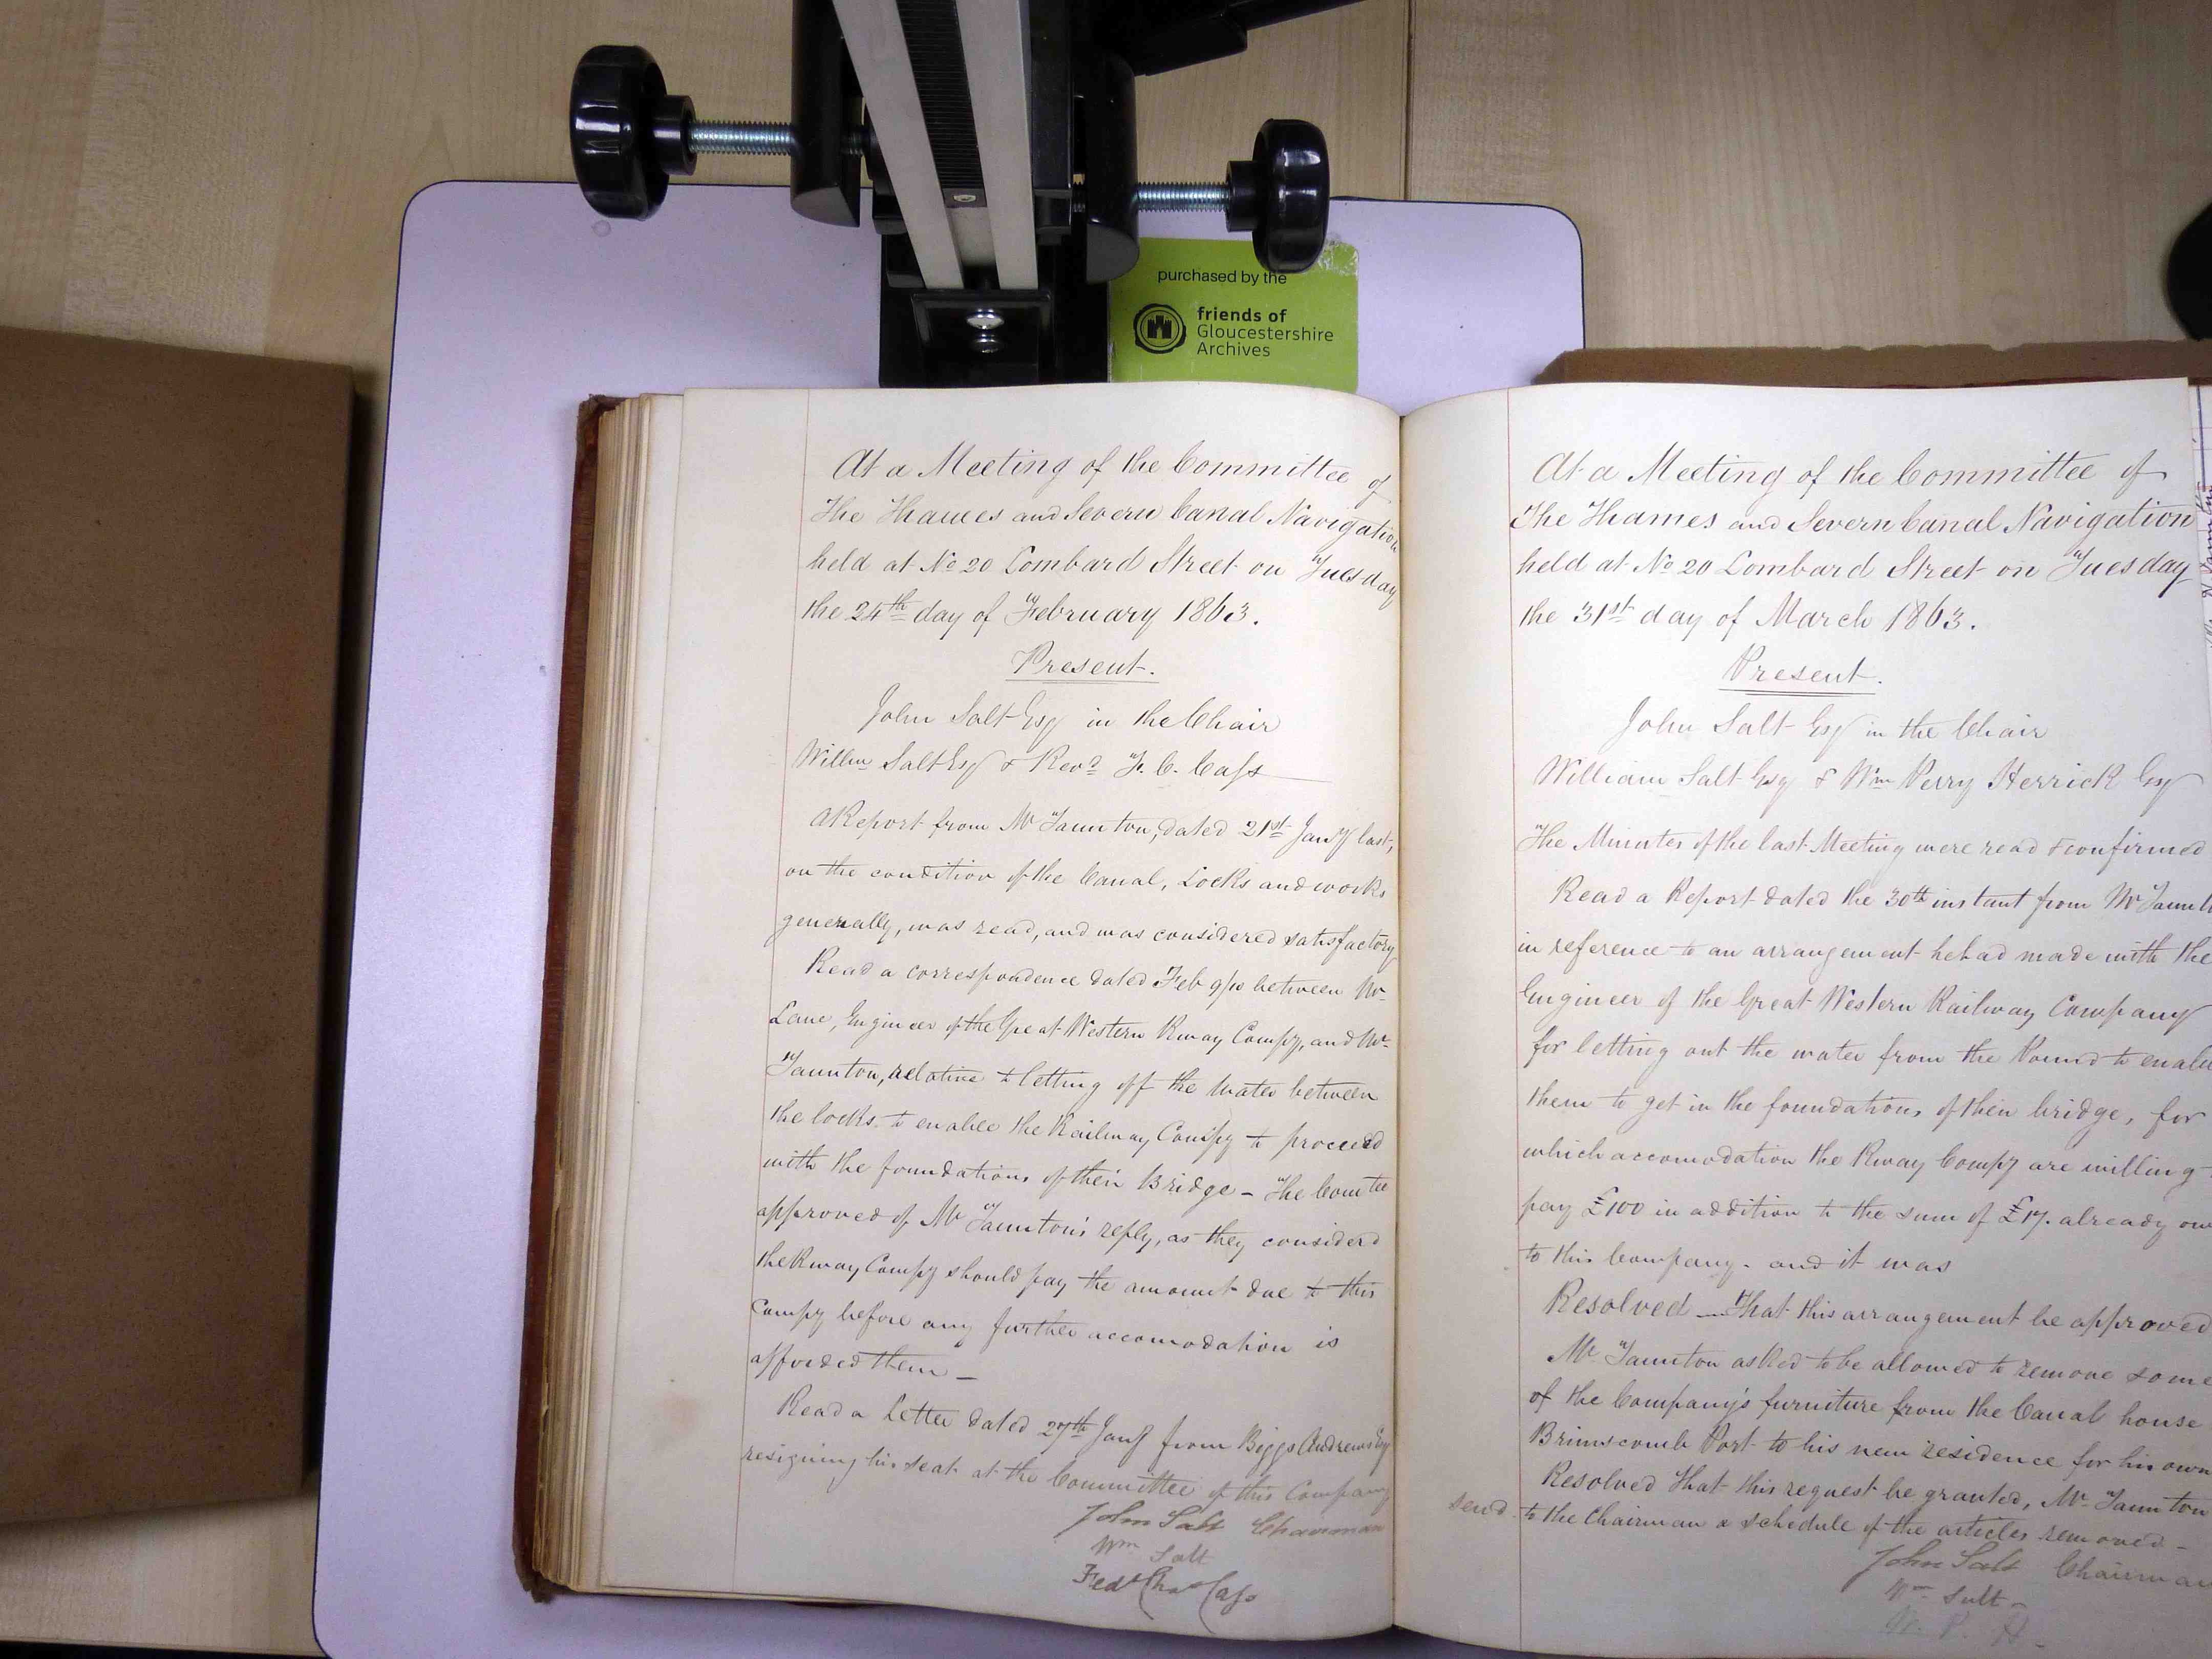 purchased by the
friends of
Gloucestershire
Archives
At a Meeting of the Committee of
The Thames and Severn Canal Navigation
held at No 20 Lombard Street on Tuesday
the 24th day of February 1863.
Present.
John Salt Esq in the Chair
Willm Salt Esq & Revd F. C. Cass
A Report from Mr Taunton, dated 21st Jany last,
on the condition of the Canal, Locks and works
generally, was read, and was considered satisfactory
Read a correspondence dated Feb 9/10 between Mr
Lane, Engineer of the Great Western Rway Compy, and Mr
Taunton, relative to letting off the water between
the locks to enable the Railway Compy to proceed
with the foundations of their Bridge – The Comtee
approved of Mr Taunton's reply, as they considerd
the Rway Compy should pay the amount due to this
Compy before any further accomodation is
afforded them –
Read a Letter dated 27th Jany from Biggs Andrews Esq
resigning his seat at the Committee of this Company
John Salt Chairman
Wm Salt
Fredk Chas Cass
At a Meeting of the Committee of
The Thames and Severn Canal Navigation
held at No 20 Lombard Street on Tuesday
the 31st day of March 1863.
Present.
John Salt Esq in the Chair
William Salt Esq & Wm Perry Herrick Esq
The Minutes of the last Meeting were read & confirmed
Read a Report dated the 30th instant from Mr Taunt
in reference to an arrangement he had made with the
Engineer of the Great Western Railway Company
for letting out the water from the Pound to enable
them to get in the foundations of their bridge, for
which accomodation the Rway Compy are willing
pay £100 in addition to the sum of £17. already ow
to this Company. and it was
Resolved – That this arrangement be approved
Mr Taunton asked to be allowed to remove some
of the Company's furniture from the Canal house
Brimscomb Port to his new residence for his own
Resolved That this request be granted, Mr Taunton
send to the Chairman a schedule of the articles removed –
John Salt Chairman
Wm Salt –
W. P. H.